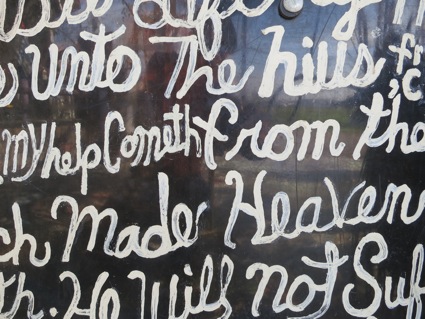 Unto The hills
my help Cometh from the
ch Made Heaven
th. He Will not Suf